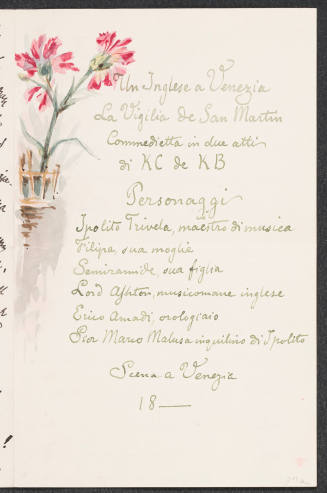 Un Inglese a Venezia
La Vigilia de San Martin
Commedietta in due atti
di KC de KB
Personaggi
Ipolito Trivela, maestro di musica
Filipa, sua moglie
Semiramide, sua figlia
Lord Ashton, musicomane inglese
Erico Amadi, orologiaio
Sior Marco Malusa inquilino di Ipolito
Scena a Venezia
18—